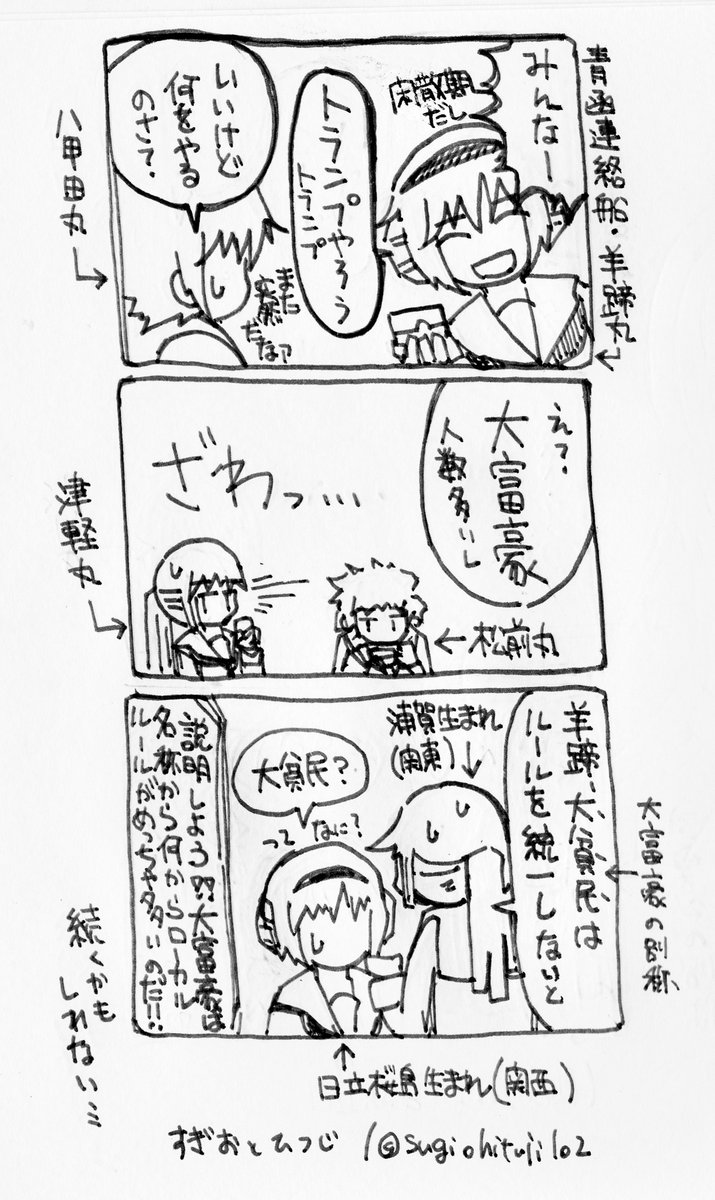 青函連絡船・羊蹄丸
みんなー
閑散期
だし
トランプやろう
トランプ
いいけど
何をやる
のさ？
八甲田丸
また
だな？
え？
大富豪
人数多いし
ざわっ…
津軽丸
松前丸
羊蹄、大貧民、は
ルールを統一しないと
大富豪の別称
浦賀生まれ
(関東)
大貧民？
って なに？
説明しよう!!大富豪は
名称から何からローカル
ルールがめっちゃ多いのだ!!
日立桜島生まれ(関西)
続くかも
しれない…
すぎおとひつじ /@sugiohituji102